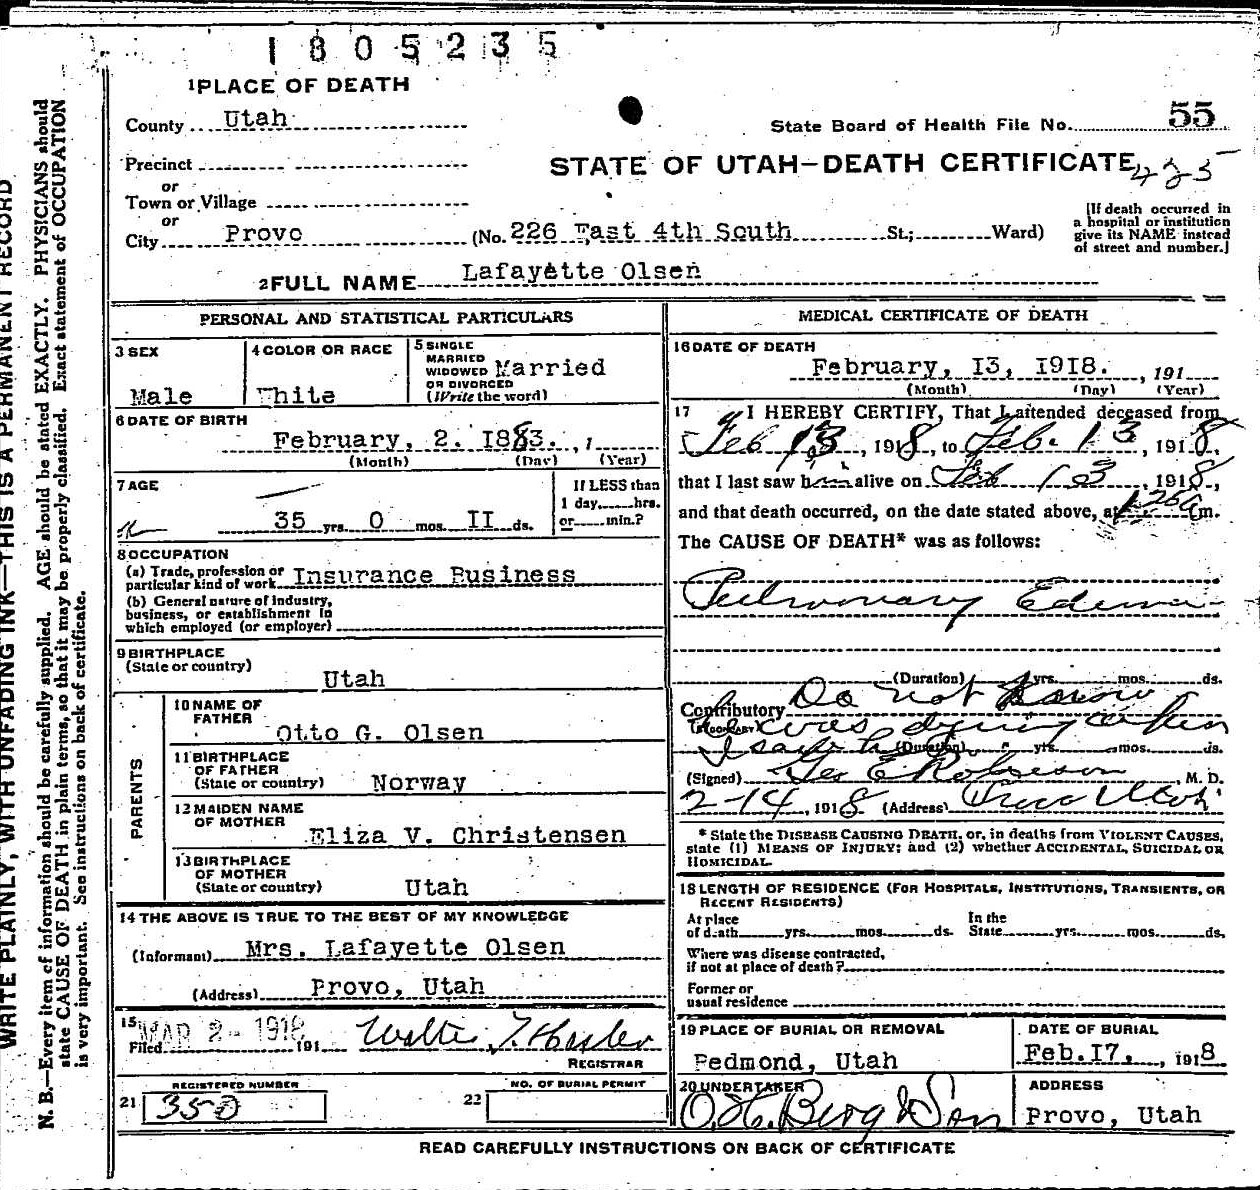 1805235
1 PLACE OF DEATH
County Utah
State Board of Health File No. 55
Precinct
STATE OF UTAH—DEATH CERTIFICATE
or
Town or Village
or
City Provo (No. 226 East 4th South St.; Ward)
[If death occurred in
a hospital or institution
give its NAME instead
of street and number.]
2 FULL NAME Lafayette Olsen
PERSONAL AND STATISTICAL PARTICULARS
3 SEX
Male
4 COLOR OR RACE
White
5 SINGLE
MARRIED
WIDOWED
OR DIVORCED
(Write the word)
Married
6 DATE OF BIRTH
February, 2. 1883. , 1
(Month) (Day) (Year)
7 AGE
35 yrs. 0 mos. II ds.
If LESS than
1 day hrs.
or min.?
8 OCCUPATION
(a) Trade, profession or
particular kind of work Insurance Business
(b) General nature of industry,
business, or establishment in
which employed (or employer)
9 BIRTHPLACE
(State or country)
Utah
PARENTS
10 NAME OF
FATHER
Otto G. Olsen
11 BIRTHPLACE
OF FATHER
(State or country) Norway
12 MAIDEN NAME
OF MOTHER
Eliza V. Christensen
13 BIRTHPLACE
OF MOTHER
(State or country) Utah
14 THE ABOVE IS TRUE TO THE BEST OF MY KNOWLEDGE
(Informant) Mrs. Lafayette Olsen
(Address) Provo, Utah
15
Filed MAR 2 - 1918 191
REGISTRAR
REGISTERED NUMBER
21 350
NO. OF BURIAL PERMIT
22
MEDICAL CERTIFICATE OF DEATH
16 DATE OF DEATH
February, I3, I918. , 191
(Month) (Day) (Year)
17 I HEREBY CERTIFY, That I attended deceased from
Feb 13, 1918, to Feb. 13, 1918,
that I last saw him alive on Feb 13, 1918,
and that death occurred, on the date stated above, at m.
The CAUSE OF DEATH* was as follows:
Pulmonary Edema
(Duration) yrs. mos. ds.
Contributory Do not know
(SECONDARY) was dying when
I saw him (Duration) yrs. mos. ds.
(Signed) Geo E Robinson, M. D.
2-14, 1918 (Address) Provo Utah
* State the DISEASE CAUSING DEATH, or, in deaths from VIOLENT CAUSES,
state (1) MEANS OF INJURY; and (2) whether ACCIDENTAL, SUICIDAL OR
HOMICIDAL.
18 LENGTH OF RESIDENCE (FOR HOSPITALS, INSTITUTIONS, TRANSIENTS, OR
RECENT RESIDENTS)
At place
of death yrs. mos. ds.
In the
State yrs. mos. ds.
Where was disease contracted,
if not at place of death?
Former or
usual residence
19 PLACE OF BURIAL OR REMOVAL
Redmond, Utah
DATE OF BURIAL
Feb. I7, , 1918
20 UNDERTAKER
O. H. Berg & Son
ADDRESS
Provo, Utah
READ CAREFULLY INSTRUCTIONS ON BACK OF CERTIFICATE
WRITE PLAINLY, WITH UNFADING INK—THIS IS A PERMANENT RECORD
N. B.—Every item of information should be carefully supplied. AGE should be stated EXACTLY. PHYSICIANS should
state CAUSE OF DEATH in plain terms, so that it may be properly classified. Exact statement of OCCUPATION
is very important. See instructions on back of certificate.